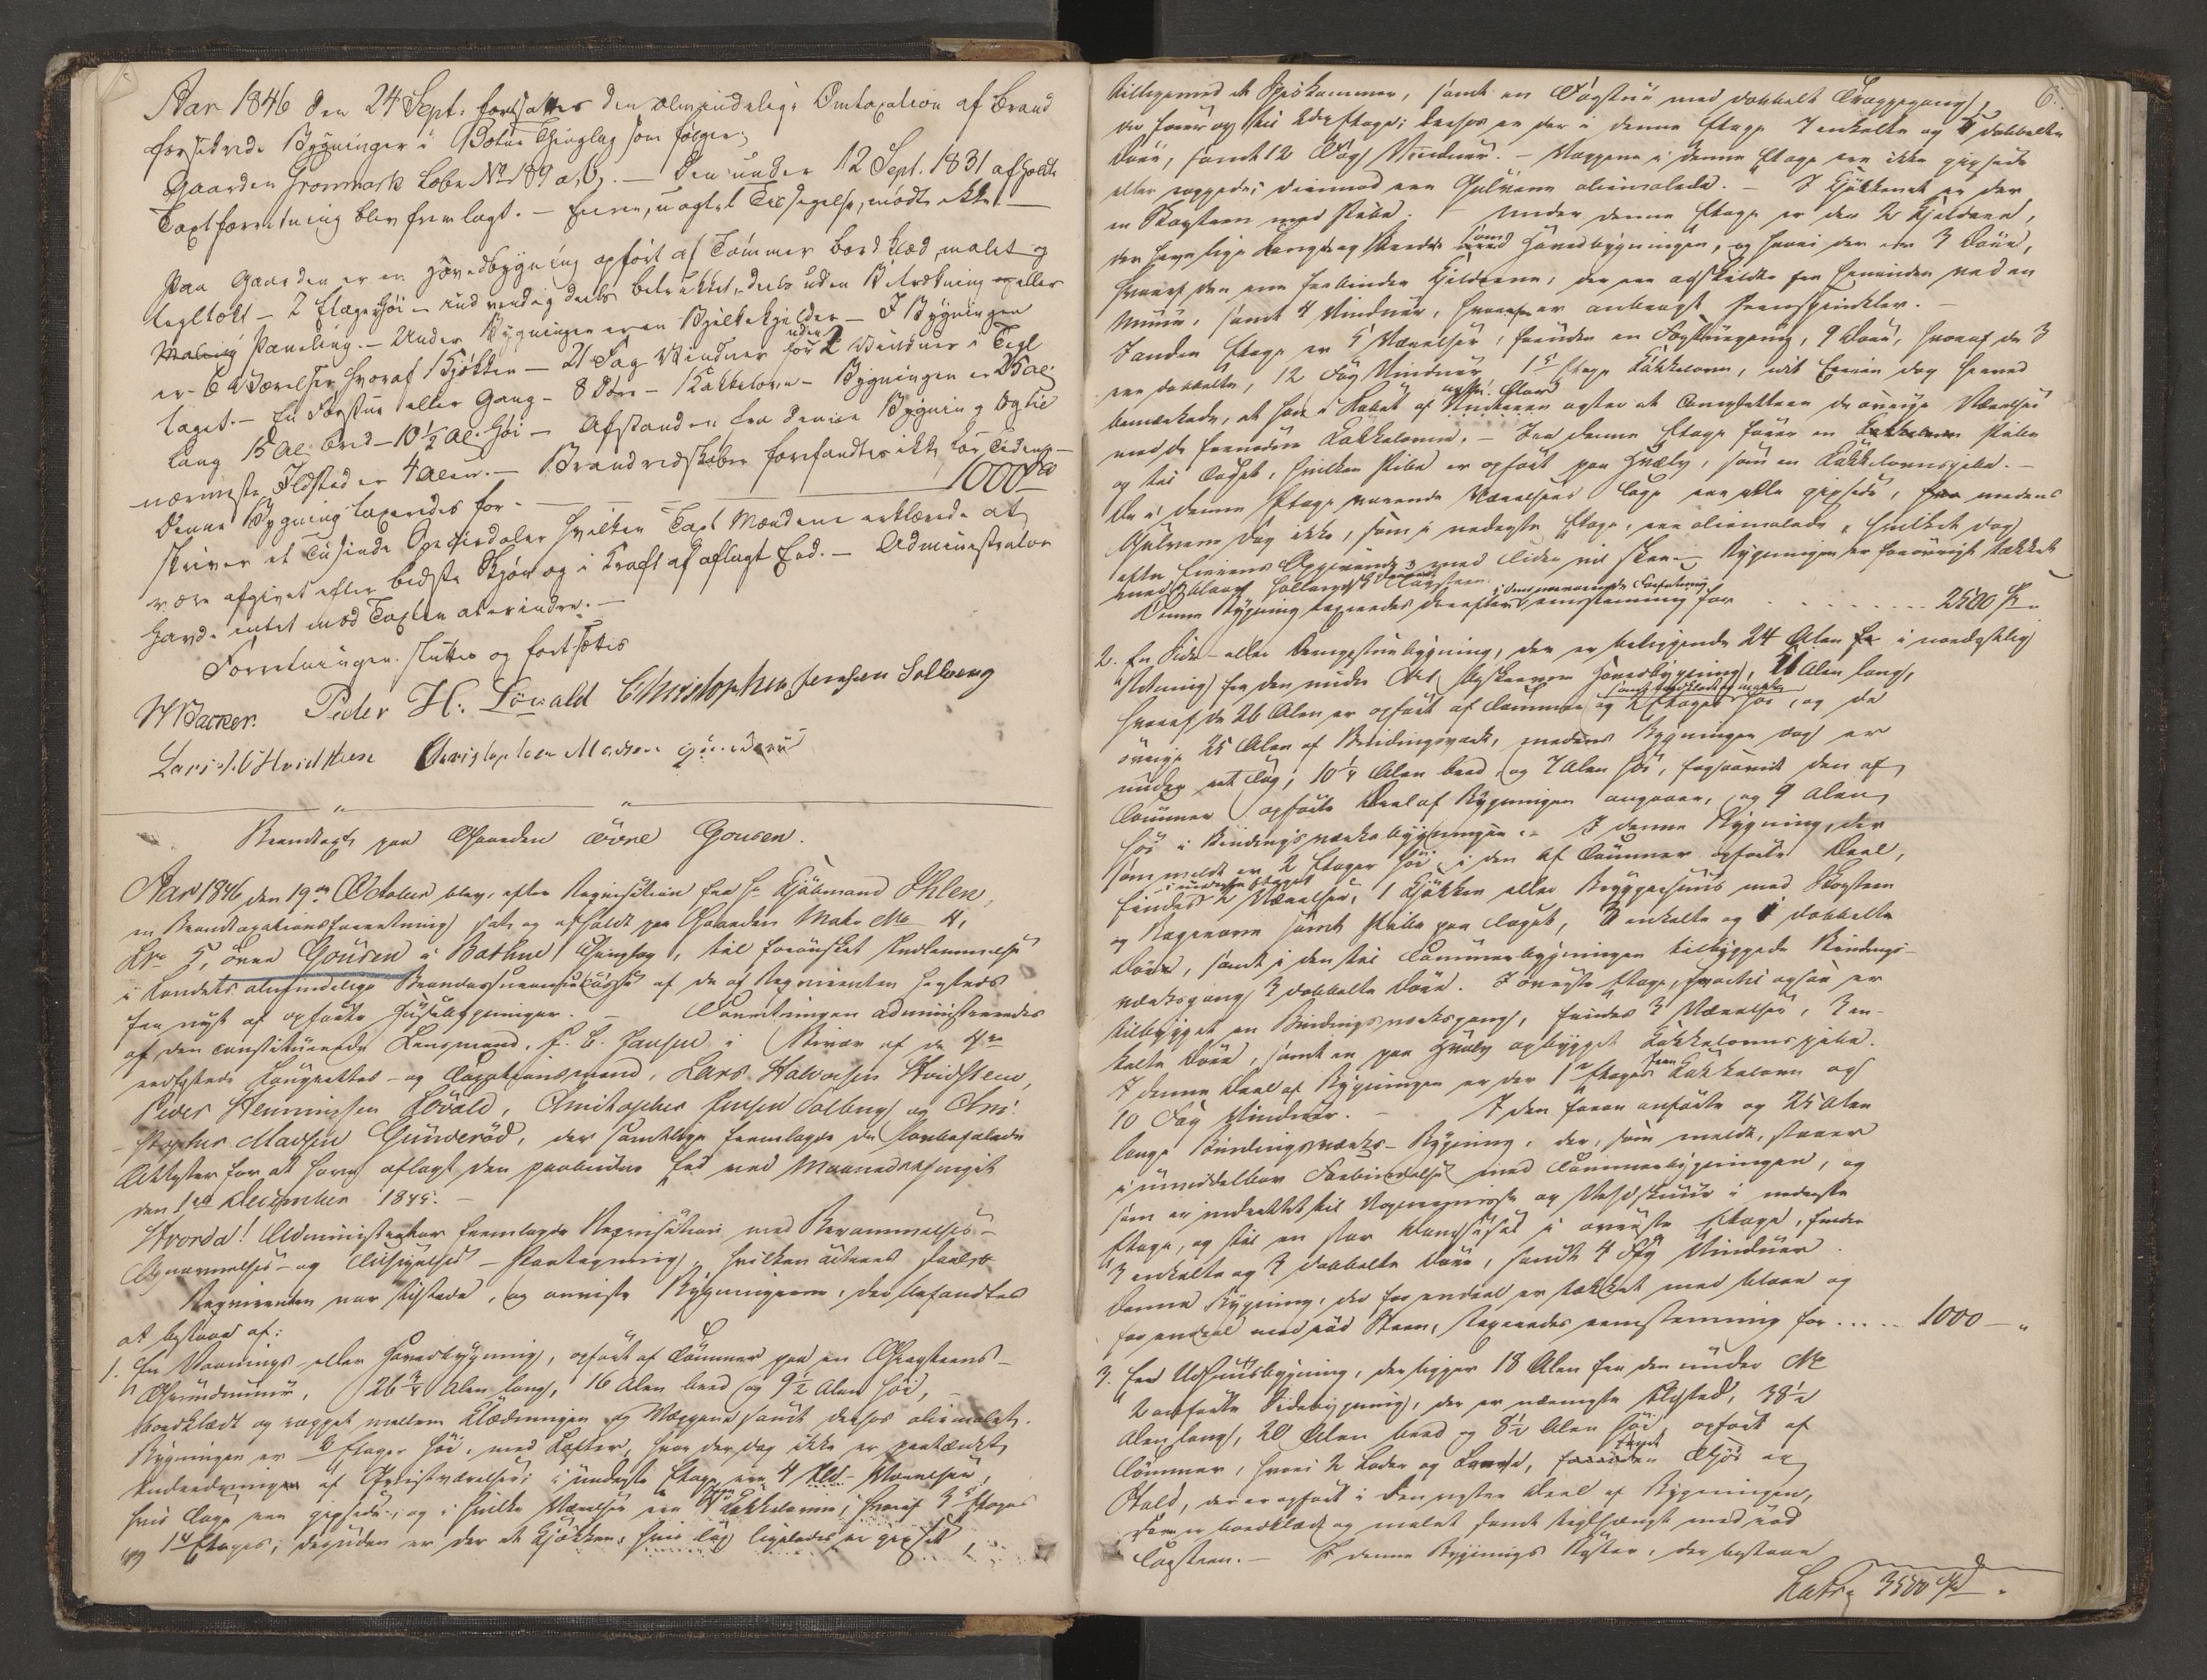 Aar 1846 den 24 Sept. fortsattes den almindelige Omtaxation af Brand
forsikrede Bygninger i Botne Thinglag som følger,
Gaarden Gronmark Løbe No 89 a, b, . — Den under 12 Sept. 1831 afholdte
Taxtforretning blev fremlagt. — Eieren, uagtet Tilsigelse, mødte ikke. —
Paa Gaarden er en Hovedbygning opført af Tømmer bordklæd, malet og
tegltækt — 2 Etager høi — indvendig deels betrukket, deels uden Betrækning og eller
Maling Paneling. — Under Bygningen er en Bjelkekjelder — I Bygningen
er 6 Værelser hvoraf 1 Kjøkken — 21 Fag Vinduer uden for 2 Vinduer i Tegl
taget. — En Forstue eller Gang — 8 Døre — 1 Kakkelovn — Bygningen er 25 al.
lang 15 Al. bred — 10½ Al. høi — Afstanden fra denne Bygning og til
nærmeste Ildsted er 4 Alen. — Brandredskaber forefandtes ikke for Tiden —
Denne Bygning taxeredes for — 1000 Sp
skriver et Tusinde Speciedaler hvilken Taxt Mændene erklærede at
være afgivet efter bedste Skjøn og i Kraft af aflagt Eed. — Administrator
havde intet mod Taxten at erindre. —
Forretningen sluttes og fortsættes
W Backer. Peder H. Lövald Christophen Jensen Solberg
Lars H Hvidsteen Christopher Madsen Gunderød
Brandtaxt paa Gaarden øvre Gousen.
Aar 1846 den 19de October blev, efter Requisition fra Hr Kjøbmand Ihlen,
en Brandtaxationsforretning sat og afholdt paa Gaarden Matr. No 4,
Lno 5, øvre Gousen i Bothne Thinglag, til forønsket Indlemmelse
i Landets almindelige Brandassurancecasse af de af Requirenten sammesteds
fra nyt af opførte Huusebygninger. — Forretningen administreredes
af den constituerede Lensmand, F. C. Jansen i Nærvær af de 4re
eedfæstede Laugrettes- og Taxationsmænd, Lars Halvorsen Hvidsteen,
Peder Henningsen Løvald, Christopher Jensen Solberg og Chri-
stopher Madsen Gunderød, der samtlige fremlagde de lovbefalede
Attester for at have aflagt den paabudne Eed ved Maanedsthinget
den 1ste December 1845. —
Hvorda! Administrator fremlagde Requisition med Berammelses-
Opnævnelses- og Tilsigelses-Paategning, hvilken acteres saal.
Requirenten var tilstede, og anviste Bygningerne, der befandtes
at bestaae af:
1. En Vaanings- eller Hovedbygning, opført af Tømmer paa en Graasteens-
Grundmuur, 26¾ Alen lang, 16 Alen bred og 9½ Alen høi, —
bordklædt og rappet mellem Klædningen og Væggene samt derhos oliemalet.
Bygningen er 2 Etager høi, med Lofter, hvor der dog ikke er paatænkt
Indredningen af Qvistværelser; i underste Etage ere 4 Værelser,
hvis Tage ere gipsede, og i hvilke Værelser ere Kakkelovne, hvoraf 3 Etages
og 1 Etages; desuden er der et Kjøkken, hvis Tag ligeledes er gipset,
6.
tilligemed et Spiskammer, samt en Dagstue med dobbelt Trappegang,
der fører op til 2den Etage; derhos er der i denne Etage 7 enkelte og 5 dobbelte
Døre, samt 12 Fag Vinduer. — Væggene i denne Etage ere ikke gipsede
eller rappede, derimod ere Gulvene oliemalede. — I Kjøkkenet er der
en Skorsteen med Pibe. — Under denne Etage er der 2 Kjeldere,
der have lige Længde og Bredde som Hovedbygningen, og hvori der ere 3 Døre,
hvoraf den ene forbinder Kjelderne, der ere adskildte fra hinanden ved en
Muur, samt 4 Vinduer, hvori er anbragt Jernsprinkler. —
I anden Etage er 5 Værelser, foruden en Forstuegang, 9 Døre, hvoraf de 3
ere dobbelte, 12 Fag Vinduer, 1 Etage Kakkelovn, idet Eieren dog herved
bemærkede, at han i Løbet af indeværende Aar agter at complettere de øvrige Værelser
med de fornødne Kakkelovne. — Fra denne Etage fører en Pibe
op til Taget, hvilken Pibe er opført paa Hvælv, som en Kakkelovnspibe. —
De i denne Etage værende Værelsers Tage ere alle gipsede, medens
Gulvene dog ikke, som i nederste Etage, ere oliemalede, hvilket dog
efter Eierens Opgivende med Tiden vil skee. — Bygningen er forøvrigt tækket
med blaae hollandsk Tagsteen.
Denne Bygning taxeredes derefter i dens nærværende Forfatning eenstemmig for . . . . . . . . 2500 Sp. "
2. En Side- eller Drengestuebygning, der er beliggende 24 Alen i nordøstlig
Retning fra den under No 1 beskrevne Hovedbygning, 51 Alen lang,
hvoraf de 26 Alen er opført af Tømmer og 2 Etager høi samt bordklædt og malet, og de
øvrige 25 Alen af Bindingsværk, medens Bygningen dog er
under eet Tag, 10¼ Alen bred, og 7 Alen høi, forsaavidt den af
Tømmer opførte Deel af Bygningen angaaer, og 9 Alen
høi i Bindingsværksbygningen. — I denne Bygning, der
som meldt er 2 Etager høi i den af Tømmer opførte Deel,
findes i underste Etage 2 Værelser, 1 Kjøkken eller Bryggerhuus med Skorsteen
og Bagerovn samt Pibe paa Taget, 3 enkelte og 1 dobbelte
Døre, samt i den til Tømmerbygningen tilbyggede Bindings-
værksgang 3 dobbelte Døre. I øverste Etage, hvortil ogsaa er
tilbygget en Bindingsværksgang, findes 3 Værelser, 3 en-
kelte Døre, samt en paa Hvælv opbygget Kakkelovnspibe.
I denne Deel af Bygningen er der 1 Etages Jern Kakkelovn og
10 Fag Vinduer. — I den foran anførte og 25 Alen
lange Bindingsværks-Bygning, der, som meldt, staaer
i umiddelbar Forbindelse med Tømmerbygningen, og
som er indrettet til Vognremisse og Vedskuur i nederste
Etage, og til en stor i øverste Etage, findes
3 enkelte og 3 dobbelte Døre, samt 4 Fag Vinduer.
Denne Bygning, der for endeel er tækket med blaae og
for endeel med rød Steen, taxeredes eenstemmig for . . . . . 1000 — "
3. En Udhuusbygning, der ligger 18 Alen fra den under No
2 anførte Sidebygning, der er nærmeste Ildsted, 38½
Alen lang, 20 Alen bred og 8½ Alen høi opført af
Tømmer, hvori 2 Lader og Laave, foruden Fjøs og
Stald, der er opført i den vestre Deel af Bygningen,
som er bordklædt og malet samt teglhængt med rød
Tagsteen. — I denne Bygnings der bestaaer
Latus 3500 Spd "